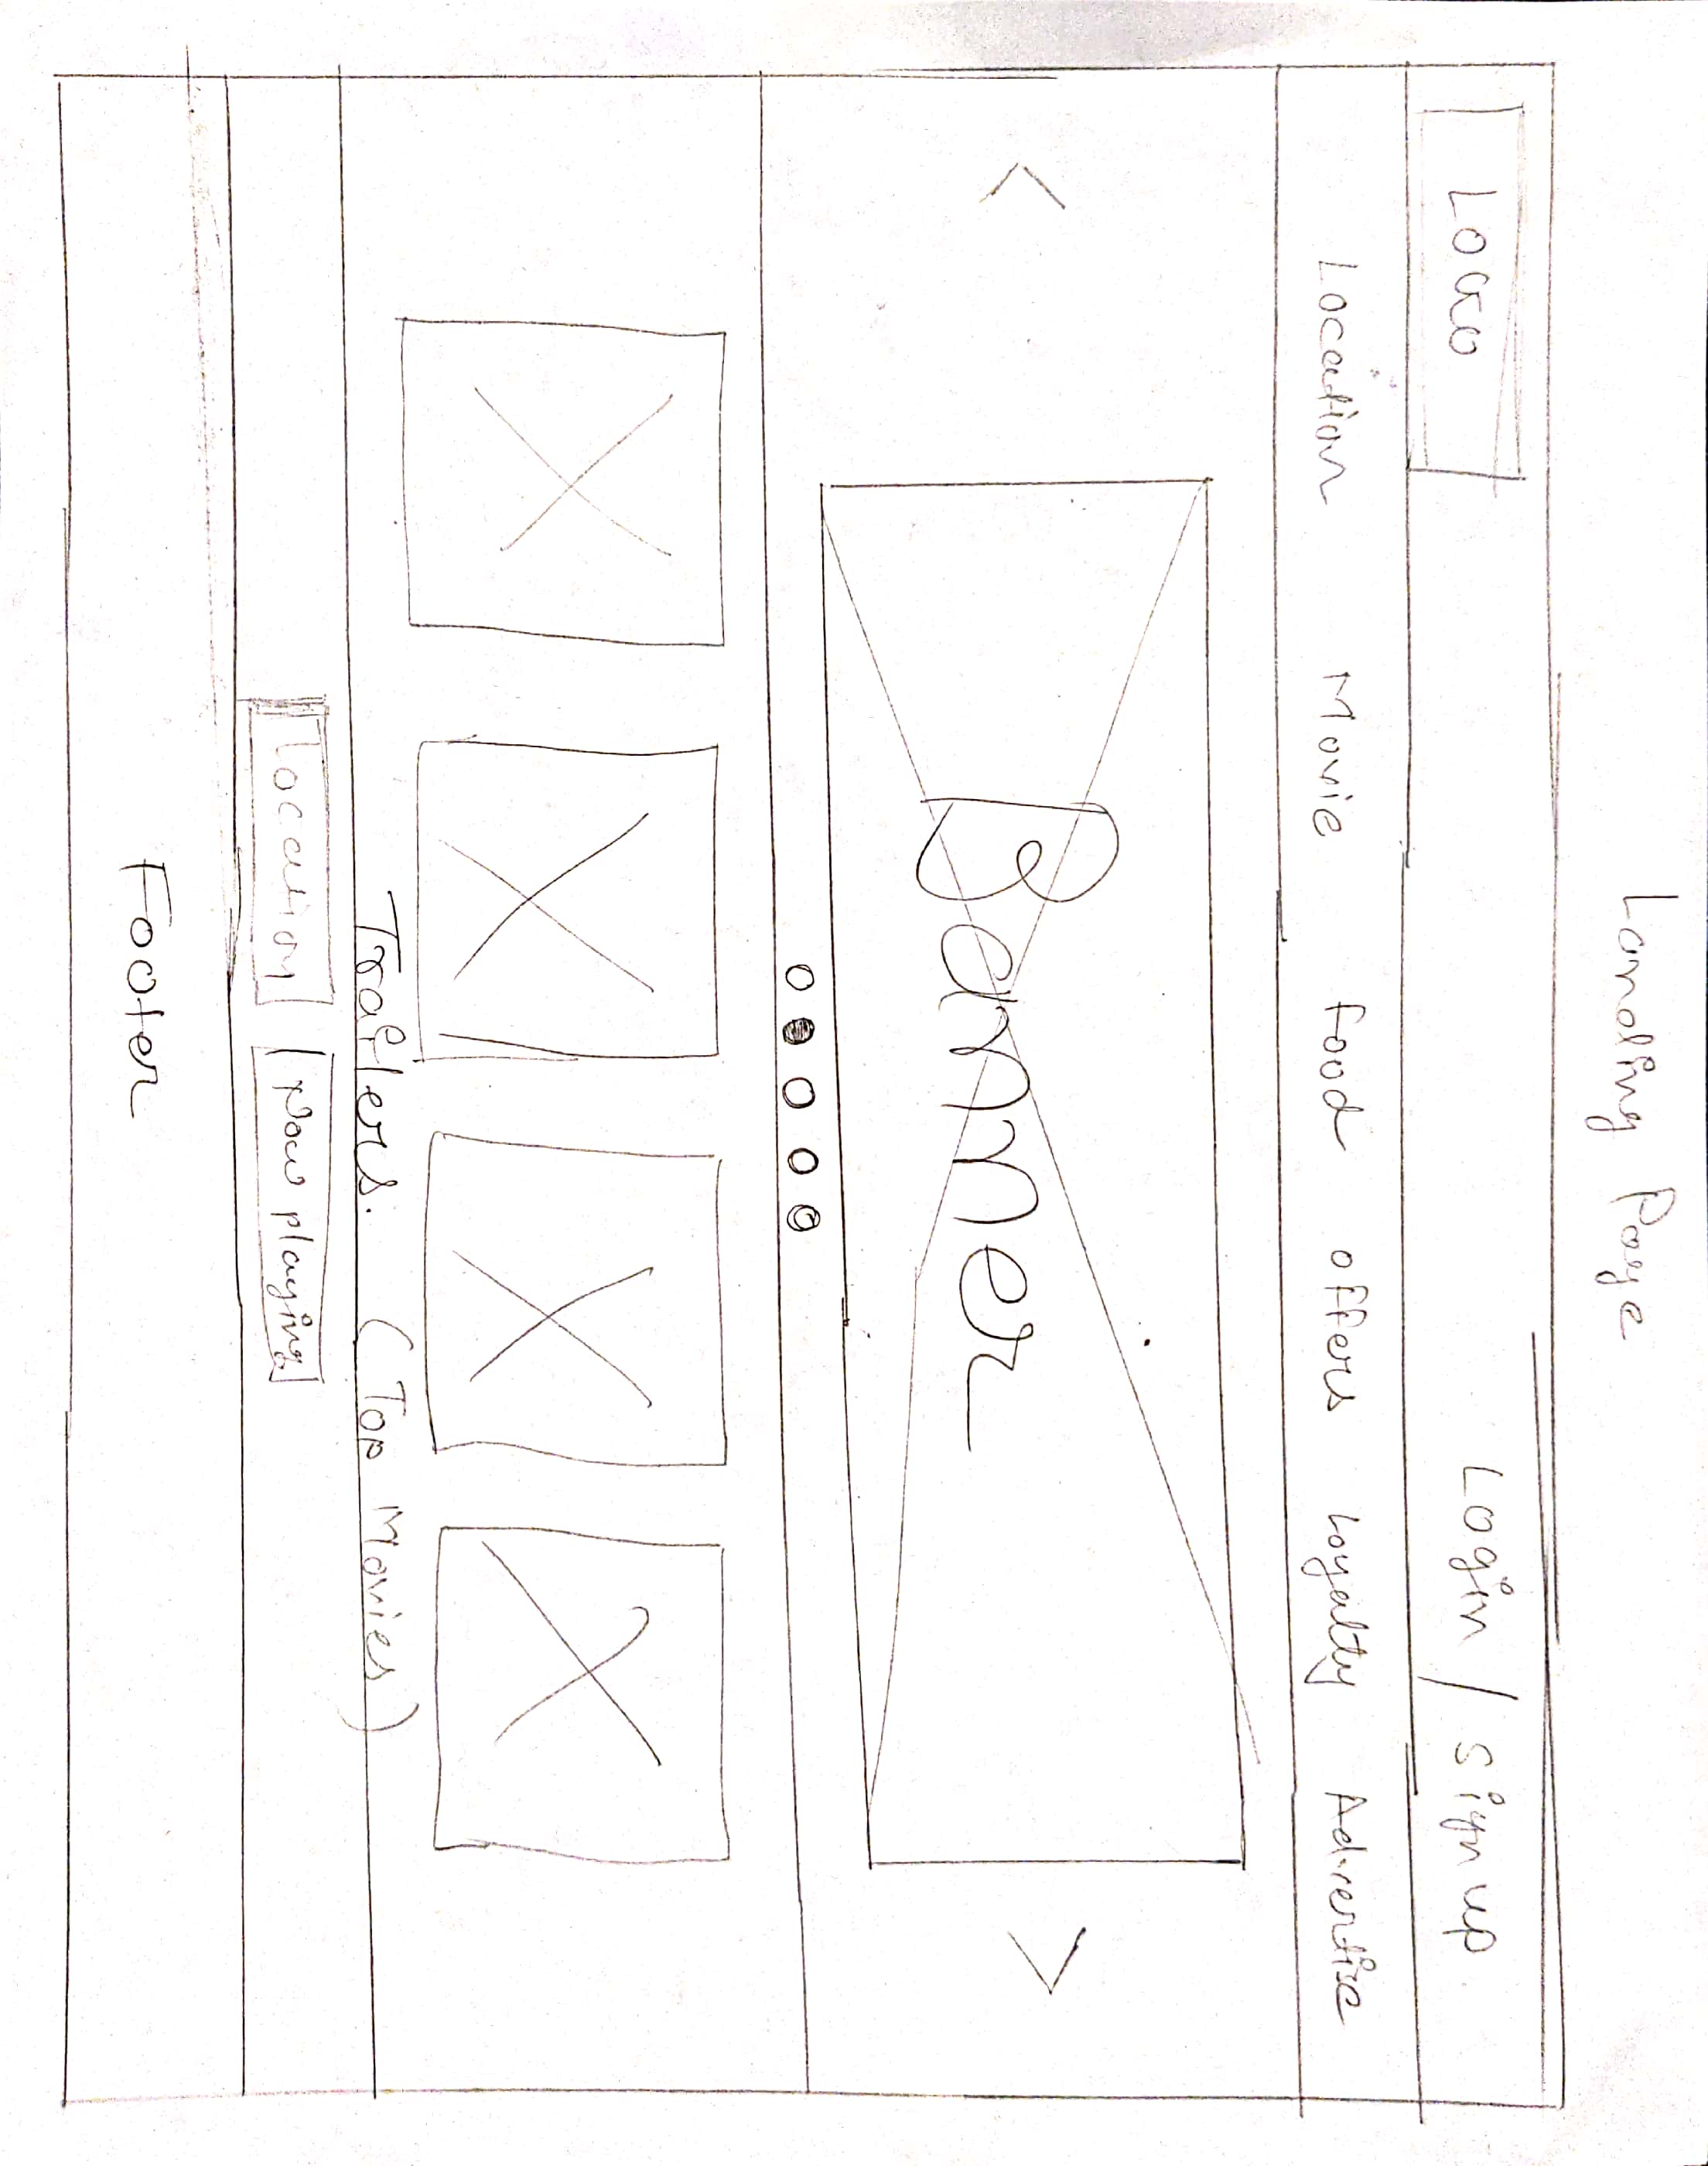 Landing Page
LOGO
Login / Sign up.
Location Movie food offers Loyalty Advertise
Banner
Trailers. (Top Movies)
Location Now playing
Footer